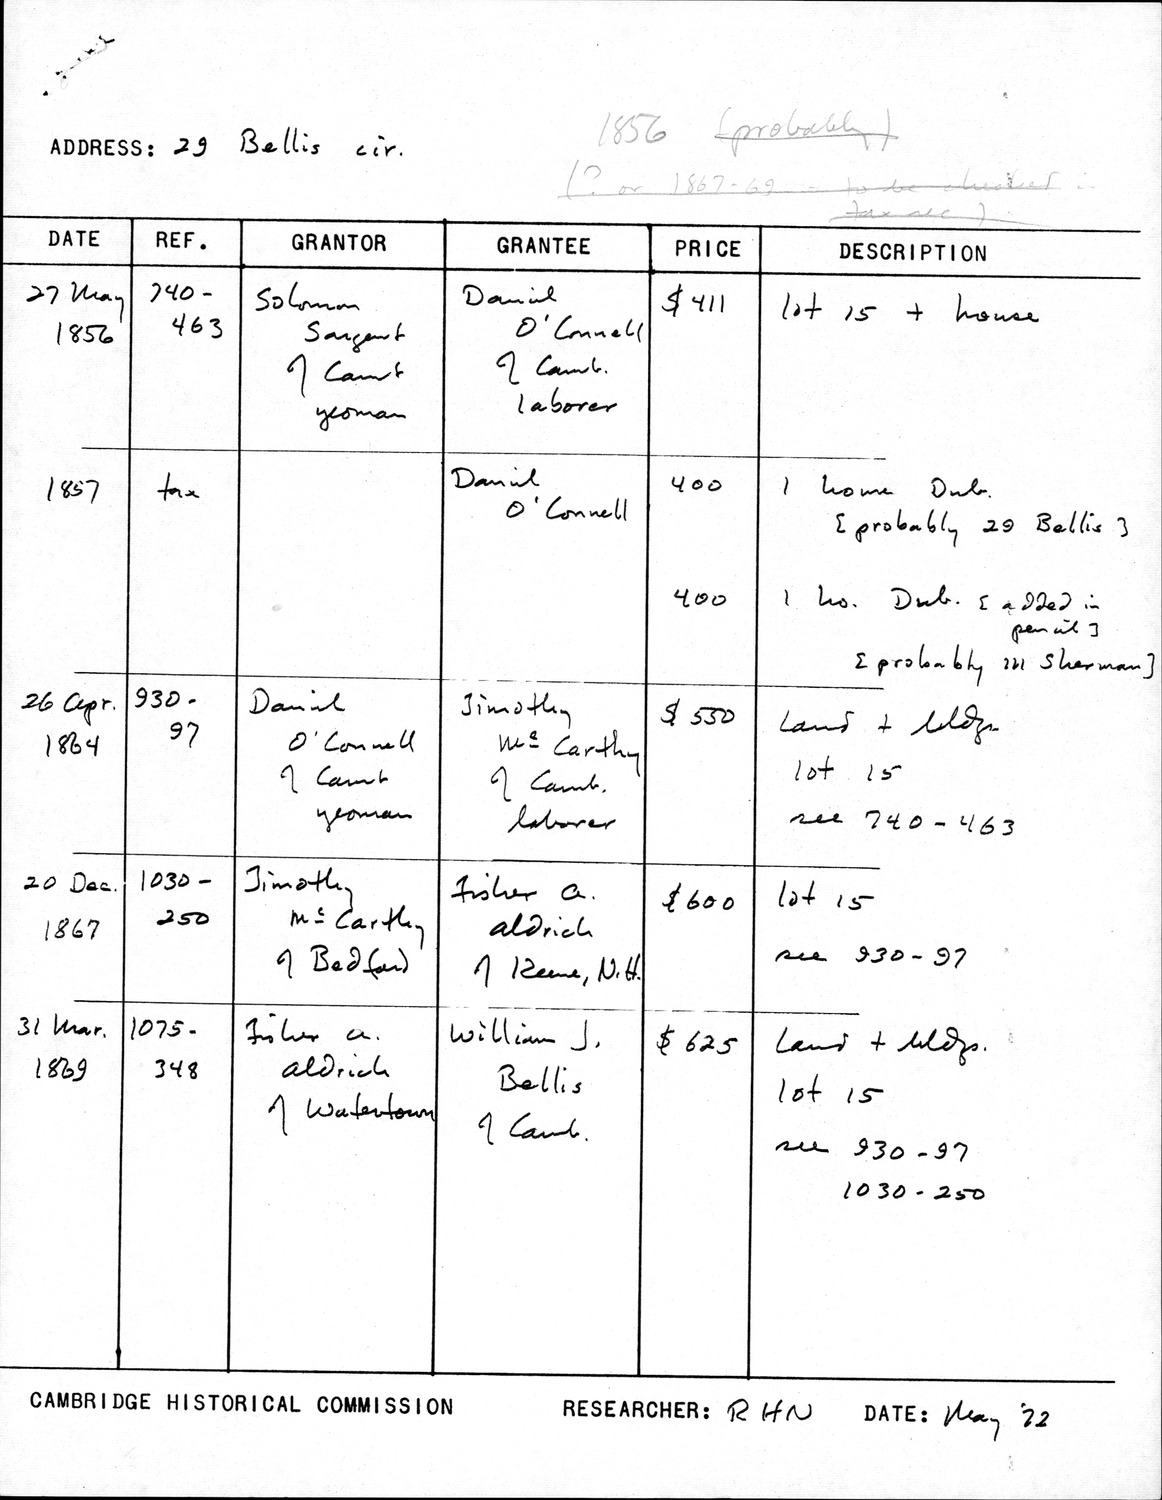 1856 (probably)
ADDRESS: 29 Bellis cir.
(? or 1867-69 - to be checked in
tax rec).
DATE REF. GRANTOR GRANTEE PRICE DESCRIPTION
27 May 740- Solomon Daniel $411 lot 15 + house
1856 463 Sargent O'Connell
of Camb of Camb.
yeoman laborer
1857 tax Daniel 400 1 house Dub.
O'Connell [probably 29 Bellis]
400 1 ho. Dub. [added in
pencil]
[probably Sherman]
26 Apr. 930- Daniel Timothy $550 Land + bldgs.
1864 97 O'Connell McCarthy lot 15
of Camb of Camb. see 740-463
yeoman laborer
20 Dec. 1030- Timothy Fisher A. $600 lot 15
1867 250 McCarthy Aldrich see 930-97
of Bedford of Keene, N.H.
31 Mar. 1075- Fisher A. William J. $625 Land + bldgs.
1869 348 Aldrich Bellis lot 15
of Watertown of Camb. see 930-97
1030-250
CAMBRIDGE HISTORICAL COMMISSION RESEARCHER: RHN DATE: May '72